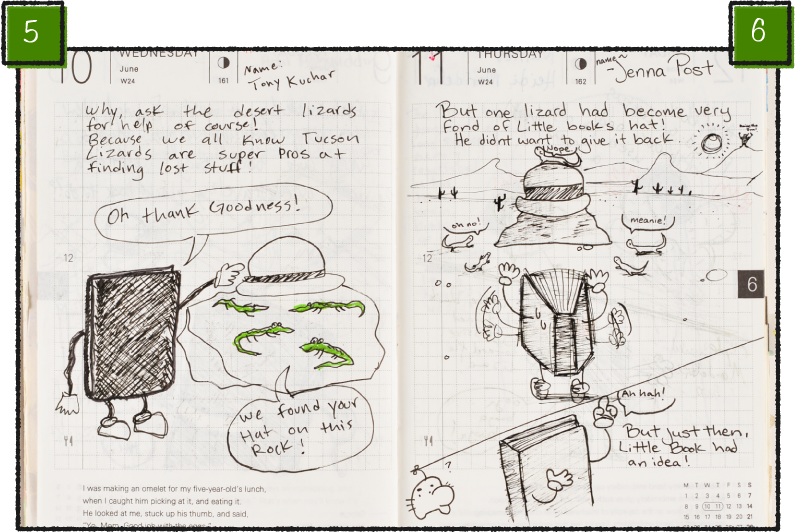 5
6
10
WEDNESDAY
June
W24
161
Name:
Tony Kuchar
Why, ask the desert lizards
for help of course!
Because we all know Tucson
Lizards are super pros at
finding lost stuff!
Oh thank Goodness!
12
We found your
Hat on this
Rock!
I was making an omelet for my five-year-old's lunch,
when I caught him picking at it, and eating it.
He looked at me, stuck up his thumb, and said,
11
THURSDAY
June
W24
162
name~
-Jenna Post
But one lizard had become very
fond of Little books hat!
He didnt want to give it back.
Nope
oh no!
meanie!
12
6
Ah hah!
But just then,
Little Book had
an idea!
?
M T W T F S S
1 2 3 4 5 6 7
8 9 10 11 12 13 14
15 16 17 18 19 20 21